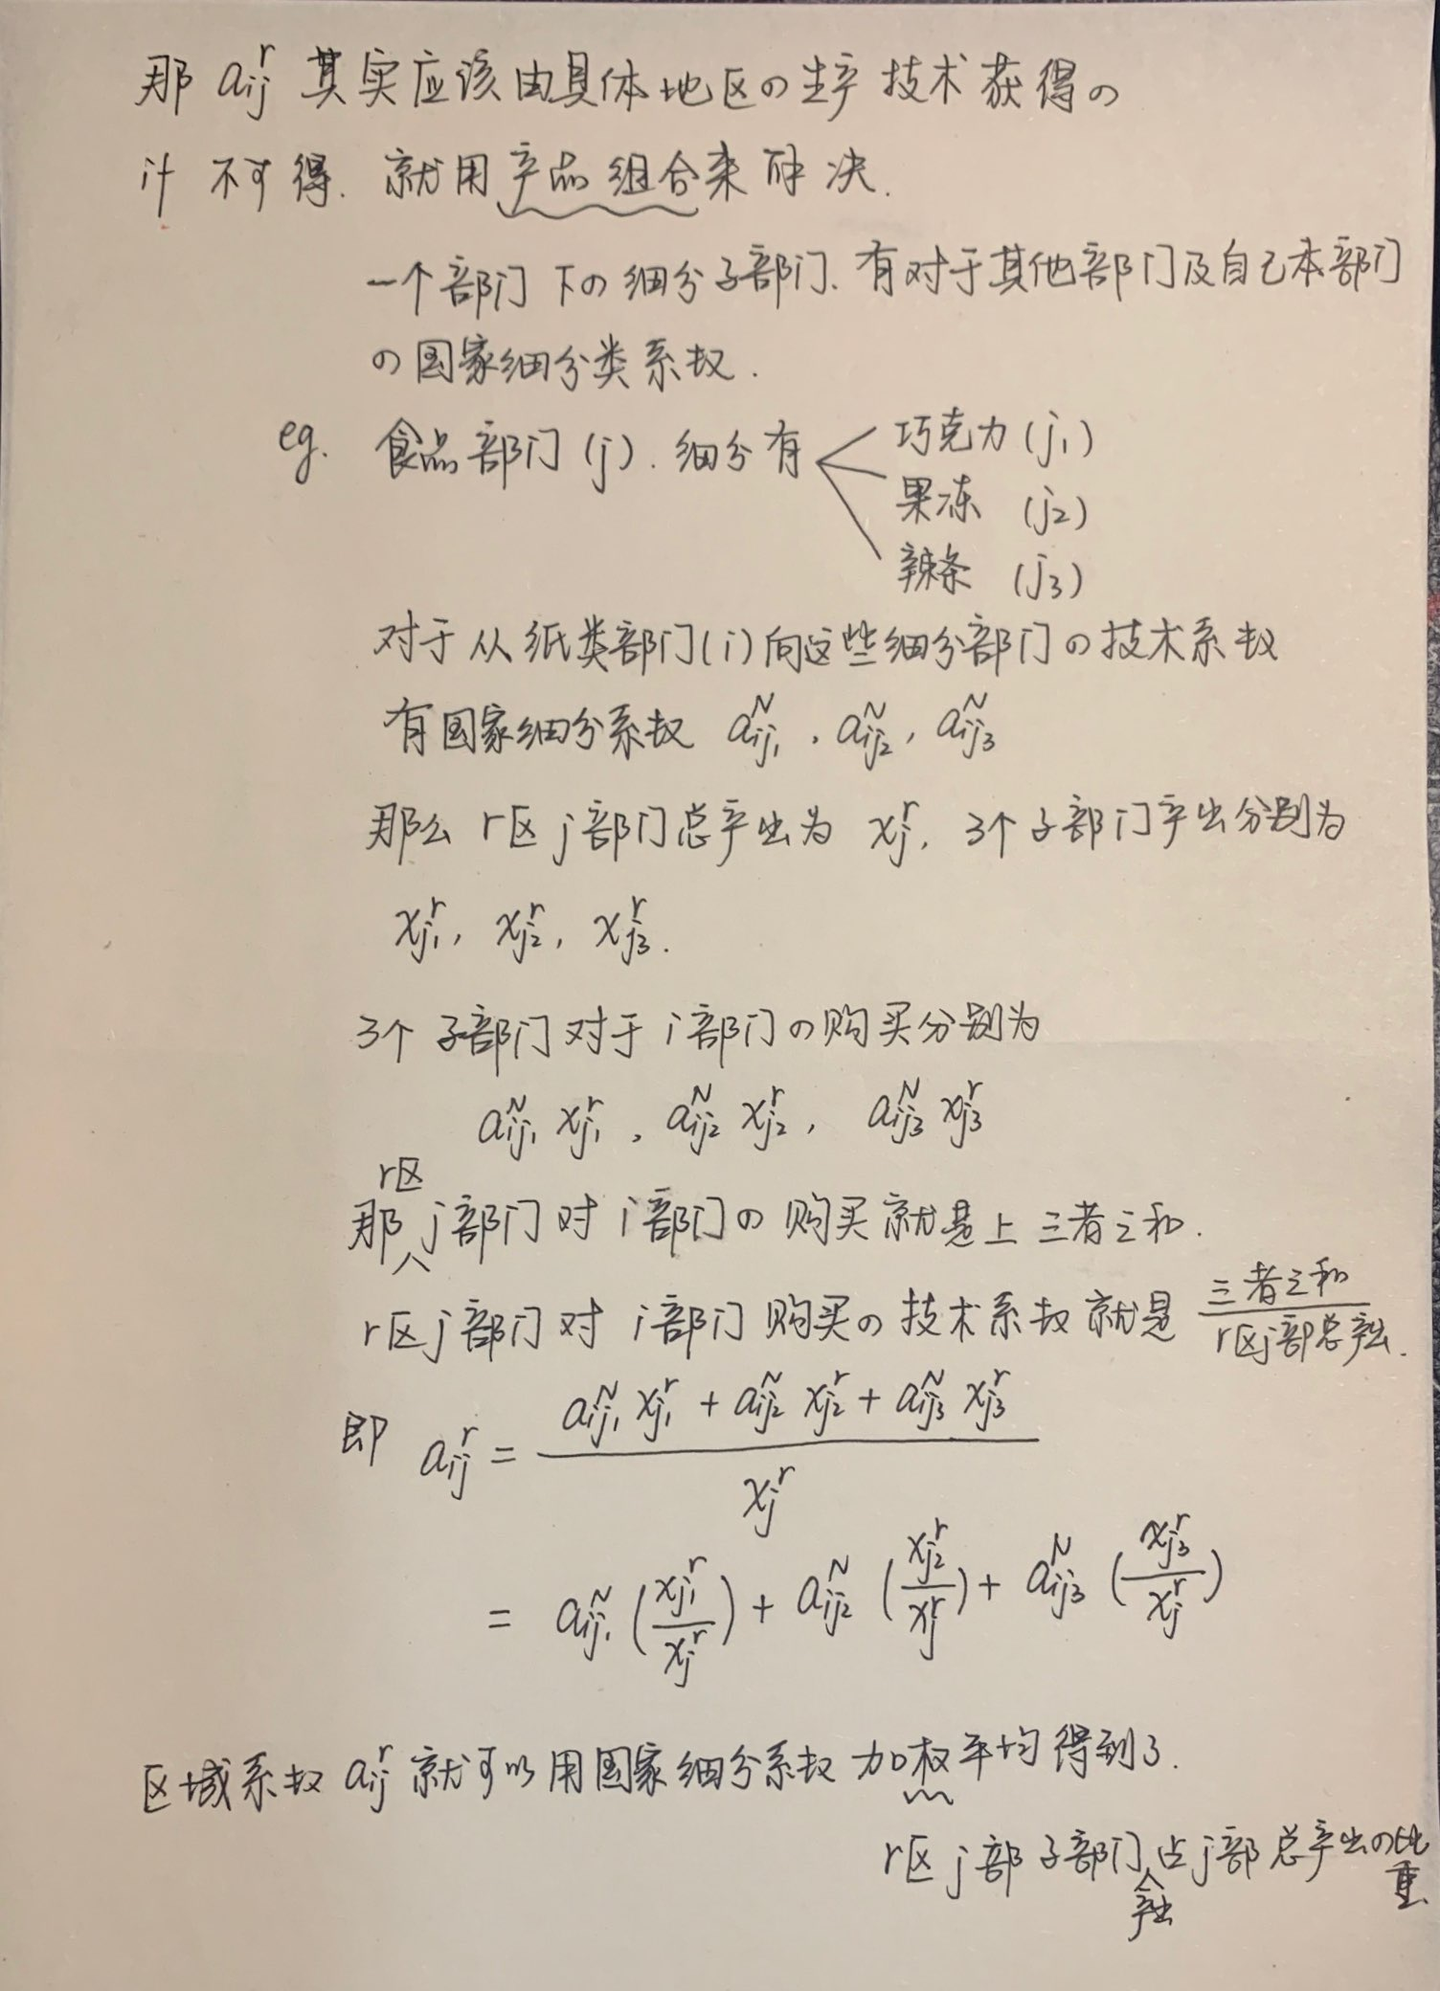 那 aᵢⱼʳ 其实应该由具体地区の生产技术获得の
it 不可得. 就用产品组合来解决.
一个部门下の细分子部门. 有对于其他部门及自己本部门
の国家细分类系数.
eg. 食品部门 (j). 细分有
巧克力 (j₁)
果冻 (j₂)
辣条 (j₃)
对于从纸类部门(i)向这些细分部门の技术系数
有国家细分系数 a_{ij₁}^N , a_{ij₂}^N , a_{ij₃}^N
那么 r区 j部门总产出为 x_j^r, 3个子部门产出分别为
x_{j₁}^r, x_{j₂}^r, x_{j₃}^r.
3个子部门对于i部门の购买分别为
a_{ij₁}^N x_{j₁}^r , a_{ij₂}^N x_{j₂}^r , a_{ij₃}^N x_{j₃}^r
那r区j部门对i部门の购买就是上三者之和.
r区j部门对i部门购买の技术系数就是 三者之和 / r区j部总产出.
即 a_{ij}^r = (a_{ij₁}^N x_{j₁}^r + a_{ij₂}^N x_{j₂}^r + a_{ij₃}^N x_{j₃}^r) / x_j^r
= a_{ij₁}^N (x_{j₁}^r / x_j^r) + a_{ij₂}^N (x_{j₂}^r / x_j^r) + a_{ij₃}^N (x_{j₃}^r / x_j^r)
区域系数 a_{ij}^r 就可以用国家细分系数加权平均得到了.
r区j部子部门产出占j部总产出の比重